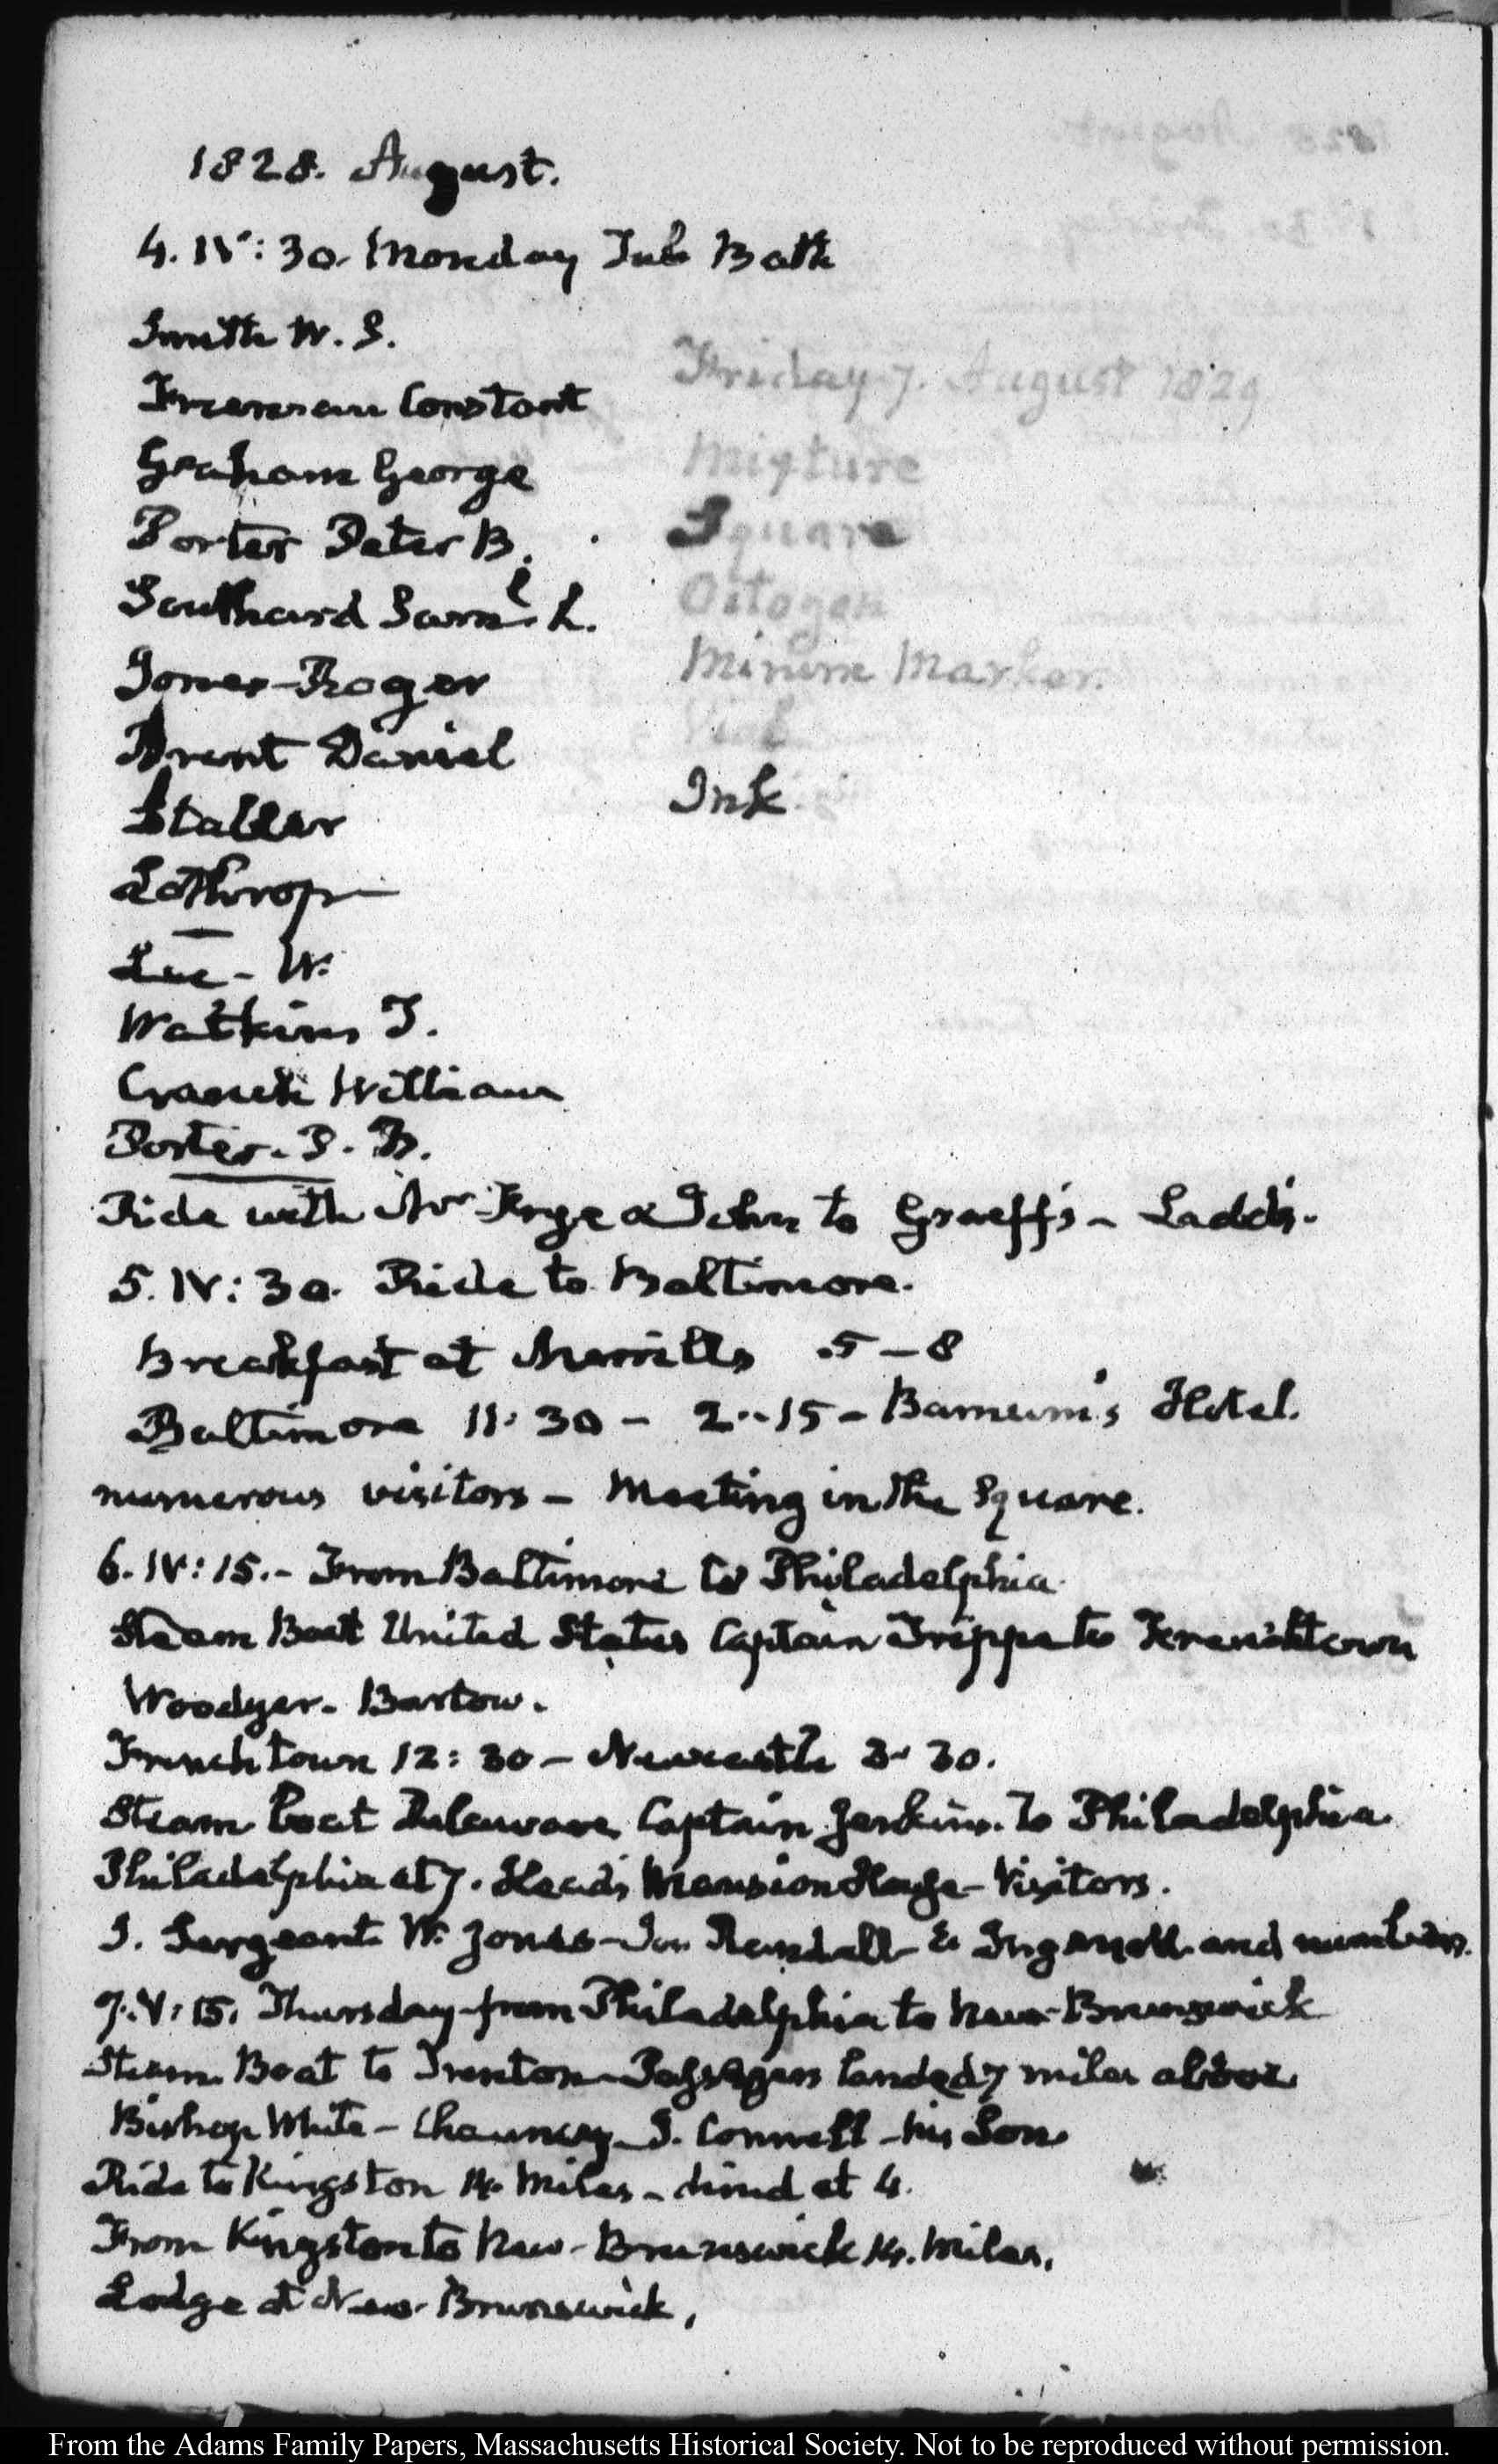 1828. August.
4. IV: 30. Monday Tub Bath
Smith W. S.
Freeman Constant
Graham George
Porter Peter B.
Southard Saml. L.
Jones Roger
Brent Daniel
Lothrop
Lee - W.
Watkins T.
Cranch William
Porter. P. B.
Friday 7. August 1829
Mixture
Square
Octogon
Minim Marker.
Ink
Ride with Mr Frye & John to Graeff's - Ladd's.
5. IV: 30. Ride to Baltimore.
Breakfast at Merrills 5 - 8
Baltimore 11: 30 - 2..15 - Barnum's Hotel.
numerous visitors - Meeting in the Square.
6. IV: 15. - From Baltimore to Philadelphia
Steam Boat United States Captain Trippe to Frenchtown
Woodyer. Bartow.
Frenchtown 12: 30 - Newcastle 3. 30.
Steam boat Delaware Captain Jenkins. To Philadelphia.
Philadelphia at 7. Head's Mansion House - Visitors.
J. Sergeant W. Jones - Jos. - E Ingersoll and numbers.
7. V: 15. Thursday from Philadelphia to New-Brunswick
Steam Boat to Trenton - Passengers landed 7 miles above
Bishop White - Chauncey J. Connell - his Son
Ride to Kingston 14 Miles - dined at 4.
From Kingston to New-Brunswick 14. Miles.
Lodge at New-Brunswick,
From the Adams Family Papers, Massachusetts Historical Society. Not to be reproduced without permission.